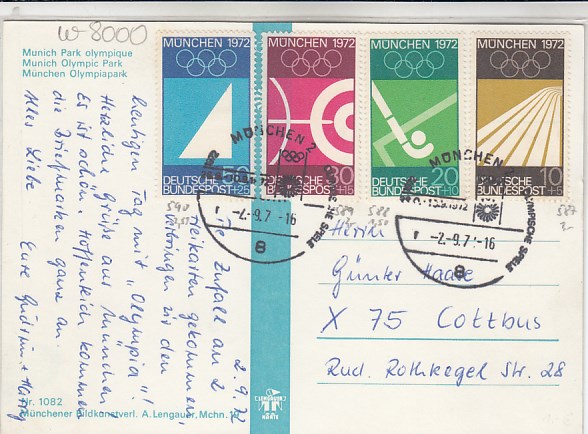 w 8000
Munich Park olympique
Munich Olympic Park
München Olympiapark
MÜNCHEN 1972
DEUTSCHE BUNDESPOST
50
+25
MÜNCHEN 1972
DEUTSCHE BUNDESPOST
30
+15
MÜNCHEN 1972
DEUTSCHE BUNDESPOST
20
+10
MÜNCHEN 1972
DEUTSCHE BUNDESPOST
10
+5
MÜNCHEN 2
SPIELE
-2.-9.7 -16
8
MÜNCHEN 2
OLYMPISCHE SPIELE
-2.-9.7 -16
8
590
589
588
587
2.9.72
Zufall am 2
Freikarten gekommen,
verbringen wir den
heutigen Tag mit "Olympia"!
Herzliche Grüße aus München!
Es ist schön. Hoffentlich kommen
die Briefmarken ganz an.
Alles Liebe Eure
Herrn
Günter
X 75 Cottbus
Rud. Rothkegel Str. 28
Nr. 1082
Münchener Bildkunstverl. A. Lengauer, Mchn.
LENGAUER
KARTE